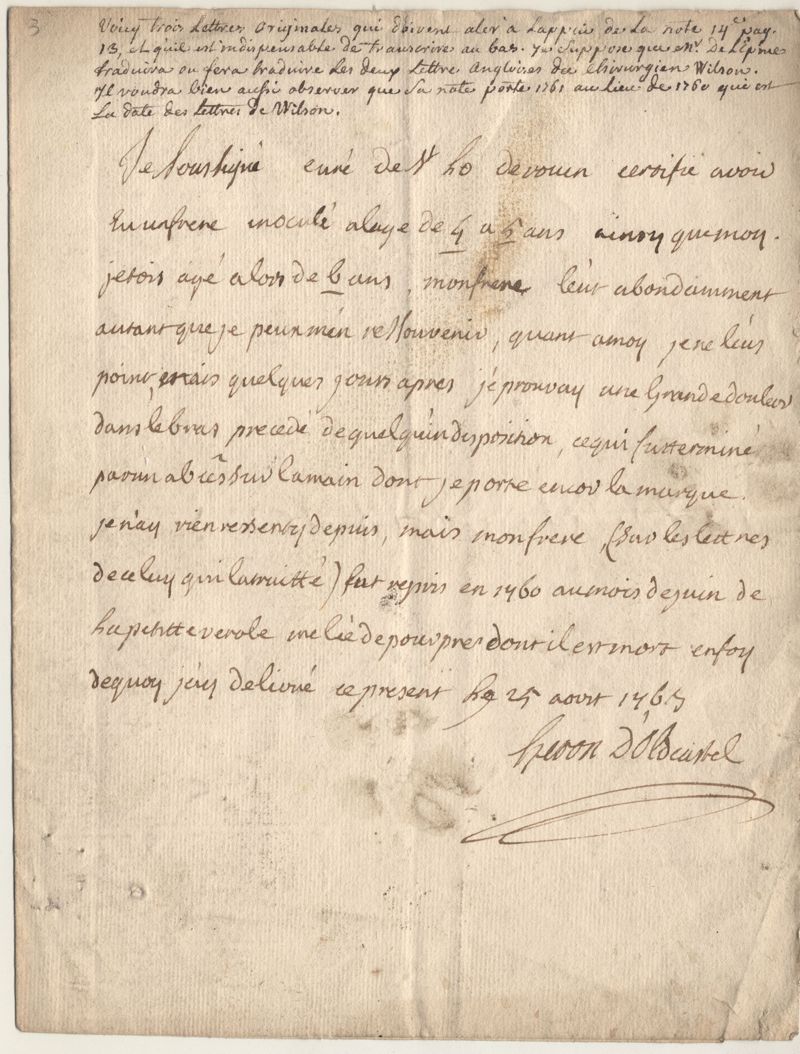 3
Voicy trois Lettres Originales qui doivent aler à Lappui de La note 14e pag.
13, et quil est indispensable de transcrire au bas. Je suppose que Mr. De Lépine
traduira ou fera traduire Les deux Lettre Angloises du Chirurgien Wilson.
Il voudra bien aussi observer que Sa note porte 1761 au Lieu de 1760 qui est
La date des Lettres de Wilson.
Je Soussigné curé de St Lo de rouen certifie avoir
Eu un frere inoculé a lage de 4 a 5 ans ainsy que moy.
jetois agé alors de 6 ans, mon frere leut abondamment
autant que je peux men ressouvenir, quant amoy je ne leus
point, mais quelques jours apres jéprouvay une Grande douleur
dans le bras precedé de quelqu'indisposition, ce qui fut terminé
par un abces sur la main dont je porte encor la marque.
je n'ay rien ressenty depuis, mais mon frere, (sur les lettres
de celuy qui la traitté) fut repris en 1760 au mois de juin de
La petitte verole melée de pourpre dont il est mort en foy
de quoy j'ay delivré ce present ce 25 aout 1765
heron D'Oldcastel